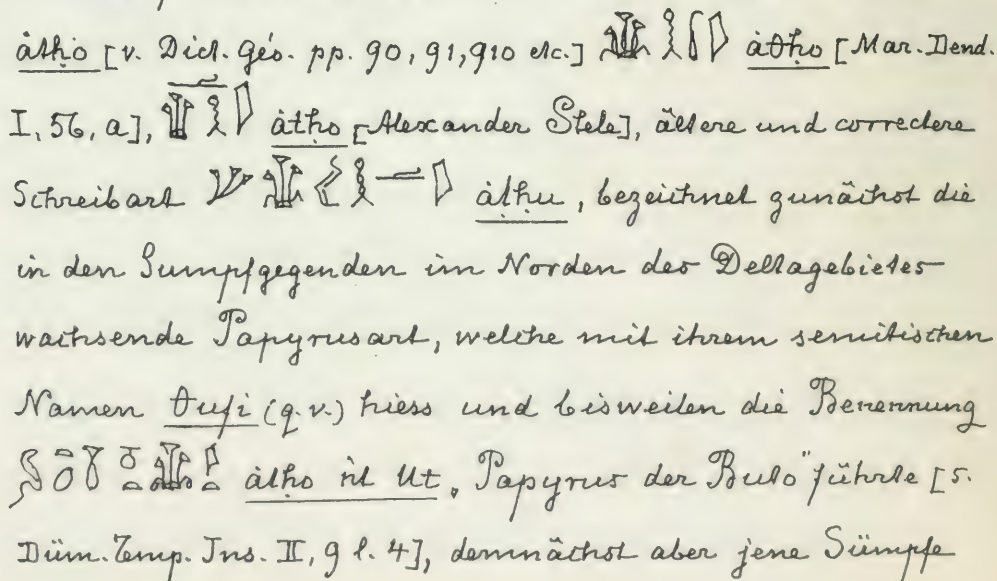 ȧtḥo [v. Dict. géo. pp. 90, 91, 910 etc.] ȧθḥo [Mar. Dend.
I, 56, a], ȧtḥo [Alexander Stele], ältere und correctere
Schreibart ȧtḥu, bezeichnet zunächst die
in den Sumpfgegenden im Norden des Deltagebietes
wachsende Papyrusart, welche mit ihrem semitischen
Namen θufi (q. v.) hiess und bisweilen die Benennung
ȧtḥo nt Ut „Papyrus der Buto" führte [s.
Düm. Temp. Ins. II, 9 l. 4], demnächst aber jene Sümpfe